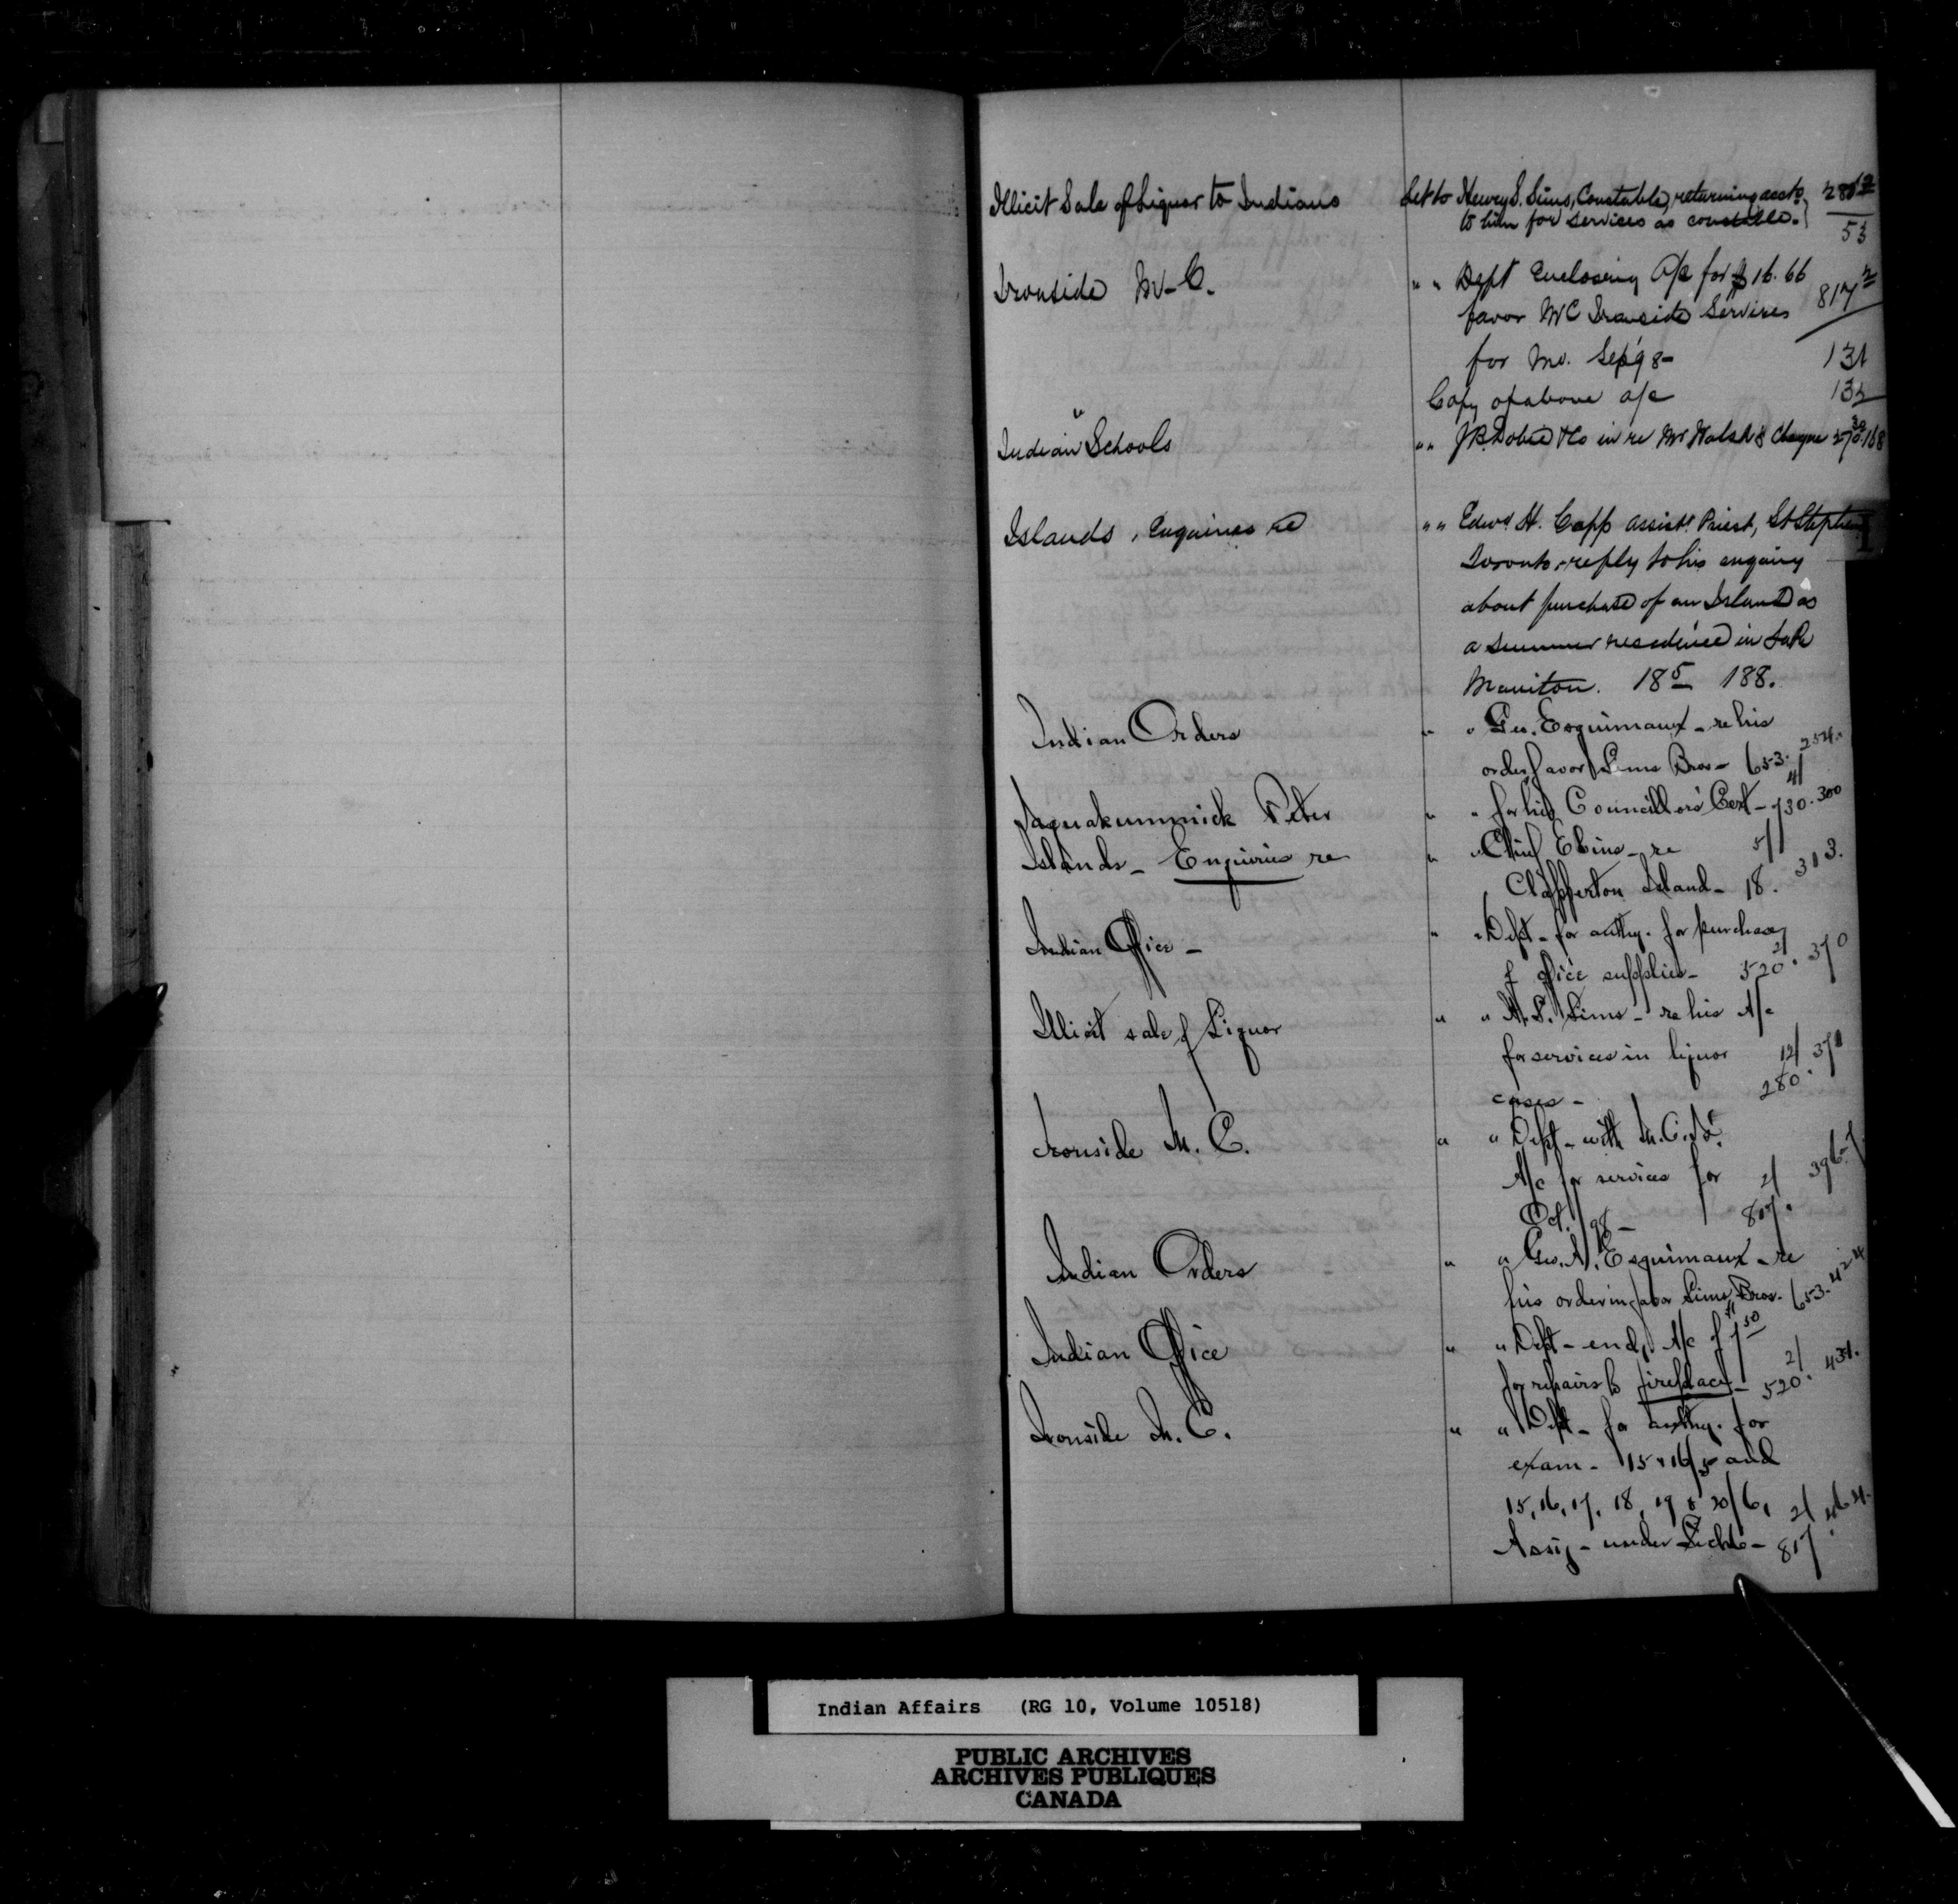 Illicit Sale of Liquor to Indians Let to Henry S. Sims, Constable, returning acct
to him for services as constable. 280 12
53
Ironside M-C. " " Dept Enclosing A/c for $16.66
favor MC Ironside Services 817 2
for Mo. Sep '98- 131
Copy of above a/c 132
Indian Schools " " J.B. & Co in re Mr Walsh's Cheque 168
Islands, Enquiries re " " Edwd H. Capp assist Priest, St Stephen
Toronto, reply to his enquiry
about purchase of an Island as
a summer residence in Lake
Manitou. 18 5 188.
Indian Orders " " Geo. Esquimaux - re his
order favor Sims Bros - 653. 254.
Jaquakummick Peter " " for his Councillors' Cert - 730. 4/ 300
Islands - Enquiries re " " Chief Ebins - re 5/
Clapperton Island - 18. 313.
Indian Office - " " Dept - for authy. for purchase
of office supplies - 520 2/. 370
Illicit sale of Liquor " " H. S. Sims - re his A/c
for services in liquor 12/ 371
cases - 280.
Ironside M. C. " " Dept - with M.C.I's.
A/c for services for 2/ 396-7
Oct. /98 - 817.
Indian Orders " " Geo. A. Esquimaux - re
his order in favor Sims Bros. 653. 424
Indian Office " " Dept - encl. A/c of $1 50
for repairs to fireplace - 520 2/. 431.
Ironside M. C. " " Dept - for authy. for
exam - 15 & 16/5 and
15, 16, 17, 18, 19 & 20/6, 2/ 464.
Assig - under - 817.
I
Indian Affairs (RG 10, Volume 10518)
PUBLIC ARCHIVES
ARCHIVES PUBLIQUES
CANADA